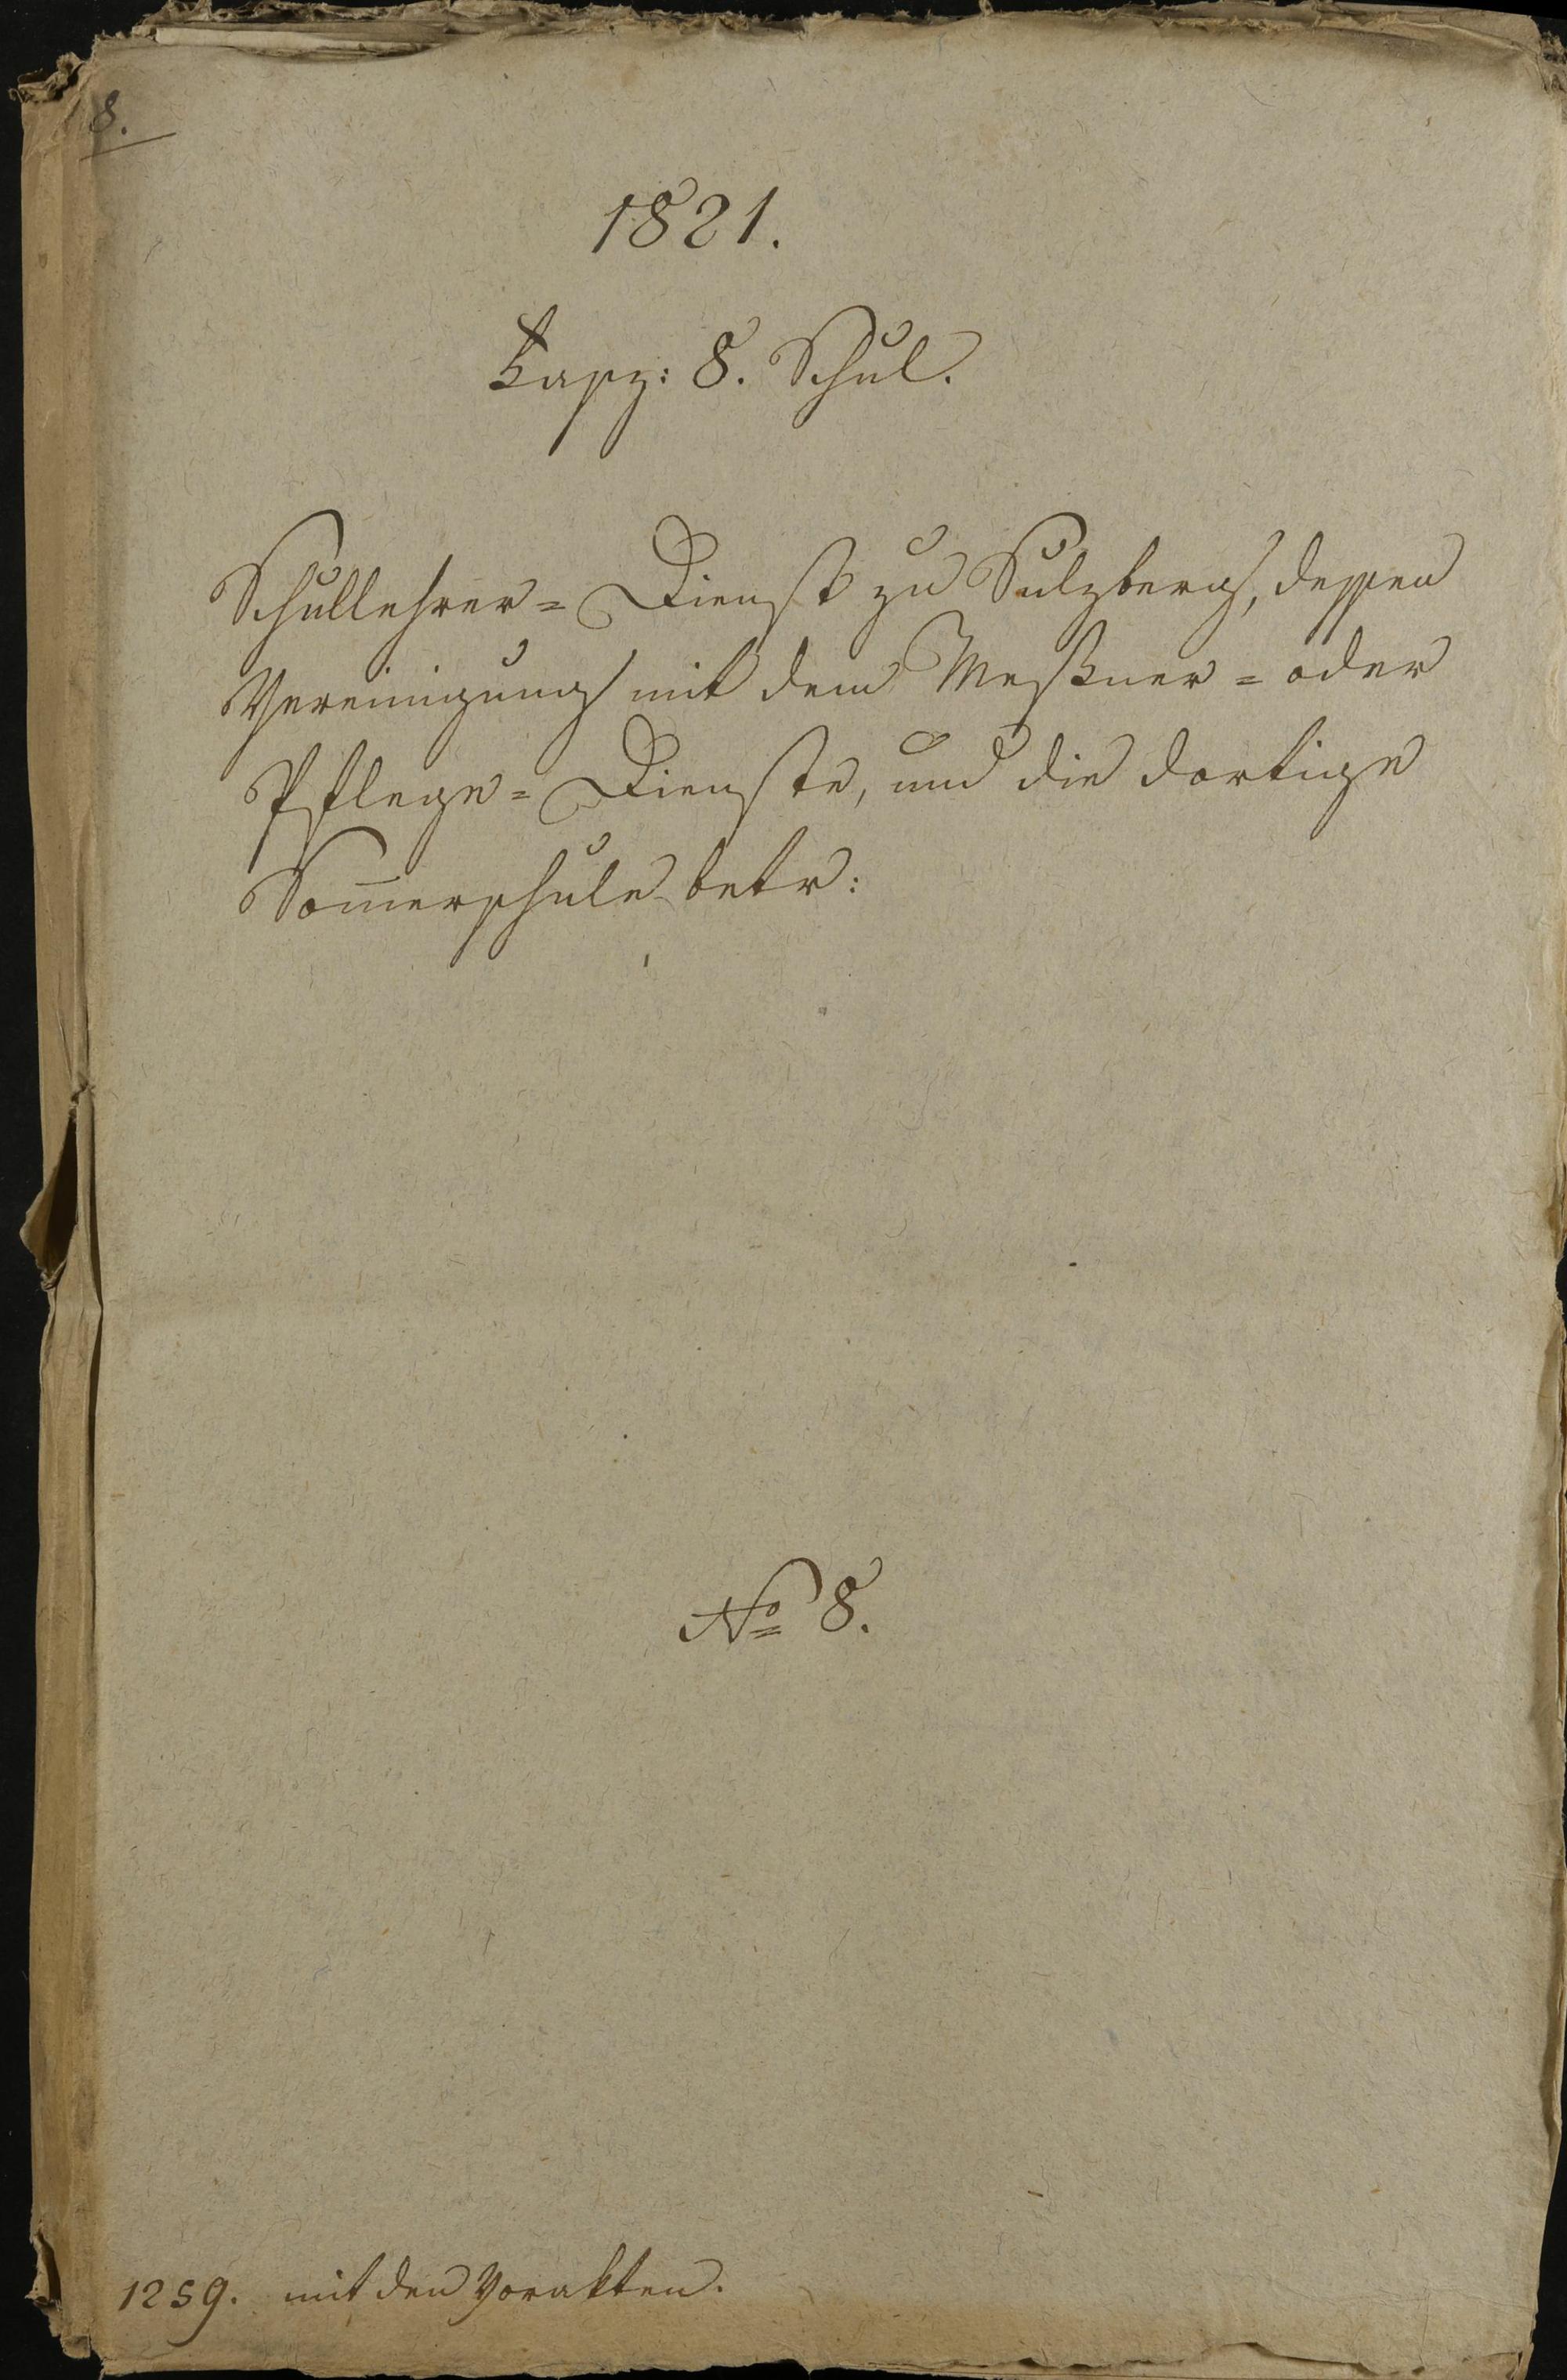 8.
1821.
Fasz: 8. Schul.
Schullehrer=Dienst zu Sulzberg, dessen
Vereinigung mit dem Meßner=oder
Pflege=Dienste, und die dortige
Som̄erschule betr:
No 8.
1259. mit den Vorakten.